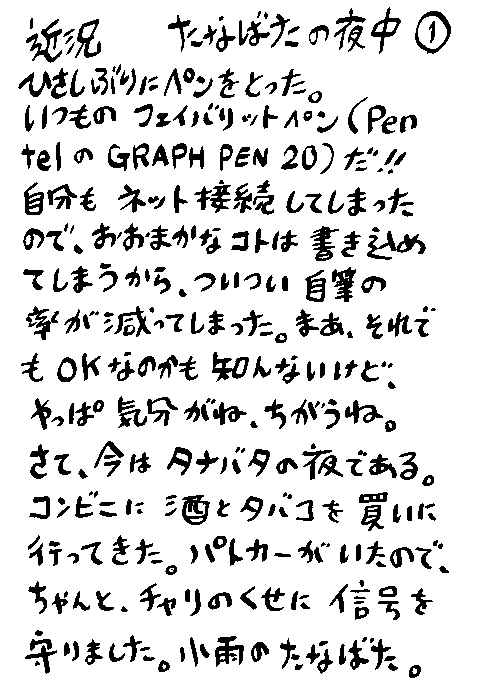 近況　たなばたの夜中 ①
ひさしぶりにペンをとった。
いつもの フェイバリットペン(Pen
telの GRAPH PEN 20)だ!!
自分も ネット接続してしまった
ので、おおまかなコトは書き込め
てしまうから、ついつい自筆の
率が減ってしまった。まあ、それで
も OKなのかも知んないけど、
やっぱ気分がね、ちがうね。
さて、今は タナバタの夜である。
コンビニに 酒とタバコを 買いに
行ってきた。パトカーがいたので、
ちゃんと、チャリのくせに 信号を
守りました。小雨の たなばた。